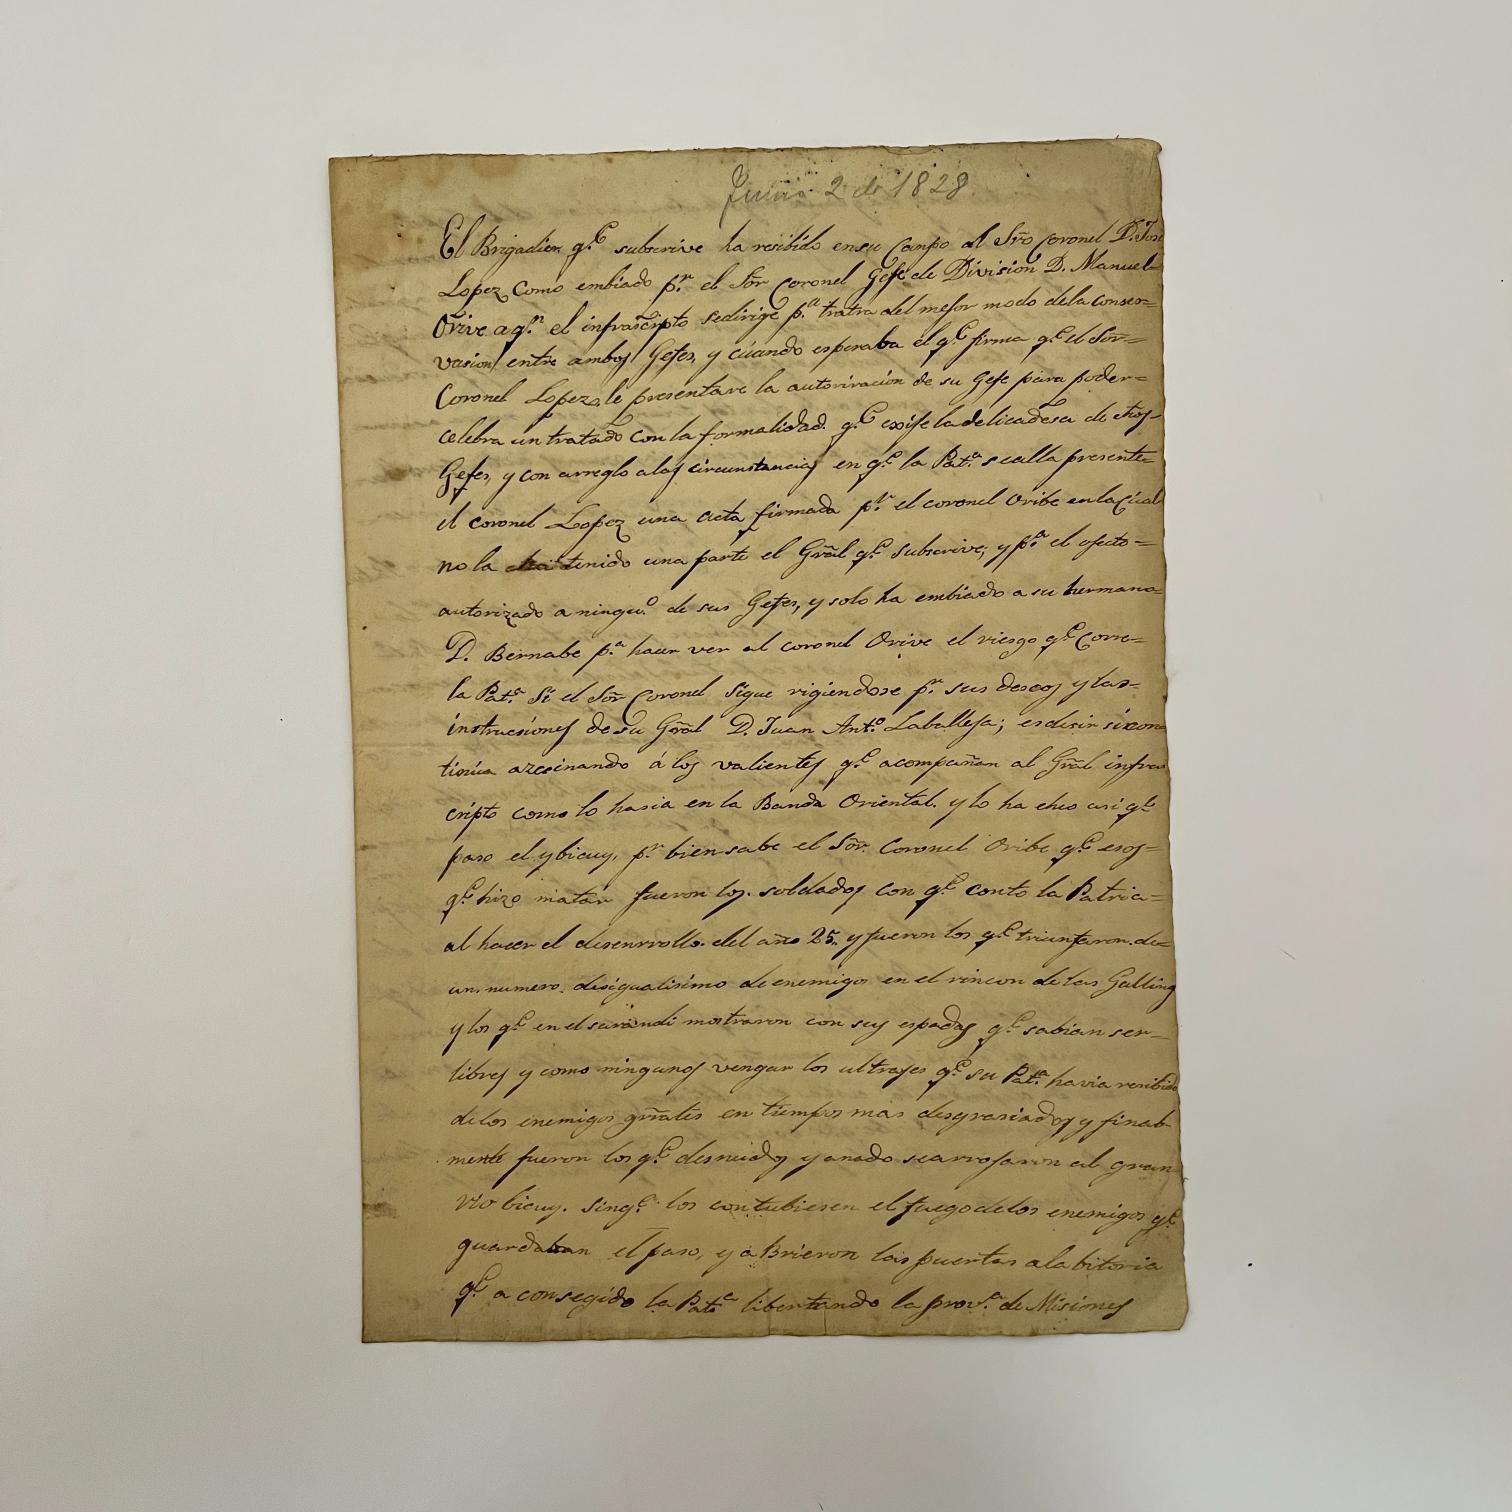 Junio 2 de 1828
El Brigadier q.e subscrive ha resibido en su Campo al Sr̃o Coronel D. Jose
Lopez, como embiado p.r el Sõr Coronel Gefe de Division D. Manuel
Orive a q.n el infrascripto se dirige p.a tratra del mejor modo de la conser=
vasion entre ambos Gefes, y cúando esperaba el q.e firma q.e el Sõr=
Coronel Lopez, le presentare la autorización de su Gefe para poder=
celebra un tratado con la formalidad q.e exije la delicadesa de
Gefes, y con arreglo a las circunstancias en q.e la Pat.a se alla presente=
el coronel Lopez una acta firmada p.r el coronel Oribe en la cúal
no la tenido una parte el Grãl q.e subscrive; y p.a el efecto=
autorizado a ningu.o de sus Gefes, y solo ha embiado a su hermano=
D. Bernabe p.a hacer ver al coronel Orive el riesgo q.e corre=
la Pat.a Si el Sõr Coronel sigue rigiendose p.r sus deseos y las=
instrusiones de su Grãl D. Juan Ant.o Laballeja; es desir si con=
tinúa azecinando á los valientes q.e acompañan al Grãl infras
cripto como lo hasia en la Banda Oriental. y lo ha echo asi q.e
paso el ybicuy, p.r bien sabe el Sõr. Coronel Oribe q.e esos=
q.e hizo matar fueron los soldados con q.e conto la Patria=
al hacer el desenrrollo del año 25. y fueron los q.e triunfaron de=
un numero desigualisimo de enemigos en el rincon de las Gallinas
y los q.e en el sarandi mostraron con sus espadas q.e sabian ser=
libres y como ningunos vengar los ultrajes q.e su Pat.a havia resibido
de los enemigos grãtes en tiempos mas desgrasiados y final=
mente fueron los q.e desnudos y anado se arrojaron al gran
rio bicuy. sin q.e los contubiesen el fuego de los enemigos q.e
guardaban el paso, y a Brieron las puertas a la bitoria
q.e a consegido la Pat.a libertando la prov.a de Misiones